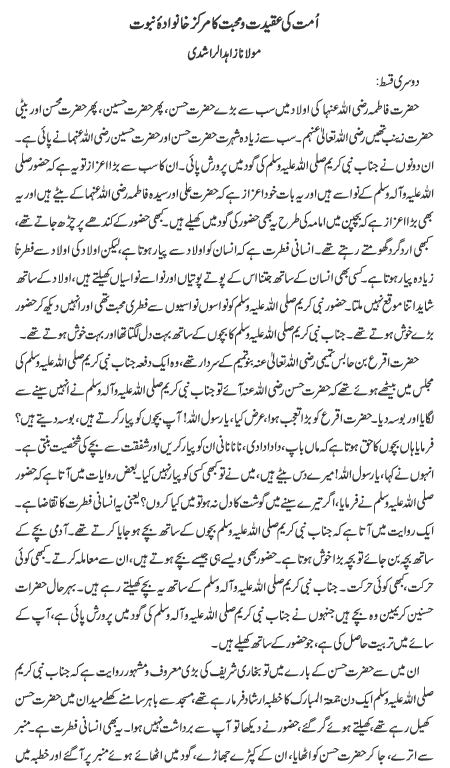 اُمت کی عقیدت و محبت کا مرکز خانوادۂ نبوت
مولانا زاہد الراشدی
دوسری قسط:
حضرت فاطمہ رضی اللہ عنہا کی اولاد میں سب سے بڑے حضرت حسن، پھر حضرت حسین، پھر حضرت محسن اور بیٹی
حضرت زینب تھیں رضی اللہ تعالیٰ عنہم۔ سب سے زیادہ شہرت حضرت حسن اور حضرت حسین رضی اللہ عنہما نے پائی ہے۔
ان دونوں نے جناب نبی کریم صلی اللہ علیہ وسلم کی گود میں پرورش پائی۔ ان کا سب سے بڑا اعزاز تو یہ ہے کہ حضور صلی
اللہ علیہ وآلہ وسلم کے نواسے ہیں اور یہ بات خود اعزاز ہے کہ حضرت علی اور سیدہ فاطمہ رضی اللہ عنہا کے بیٹے ہیں اور یہ
بھی بڑا اعزاز ہے کہ بچپن میں امامہ کی طرح یہ بھی حضور کی گود میں کھیلے ہیں۔ کبھی حضور کے کندھے پر چڑھ جاتے تھے،
کبھی اردگرد گھومتے رہتے تھے۔ انسانی فطرت ہے کہ انسان کو اولاد سے پیار ہوتا ہے، لیکن اولاد کی اولاد سے فطرتاً
زیادہ پیار ہوتا ہے۔ کسی بھی انسان کے ساتھ جتنا اس کے پوتے پوتیاں اور نواسے نواسیاں کھیلتے ہیں، اولاد کے ساتھ
شاید اتنا موقع نہیں ملتا۔ حضور نبی کریم صلی اللہ علیہ وسلم کو نواسوں نواسیوں سے فطری محبت تھی اور انہیں دیکھ کر حضور
بڑے خوش ہوتے تھے۔ جناب نبی کریم صلی اللہ علیہ وسلم کا بچوں کے ساتھ بہت دل لگتا تھا اور بہت خوش ہوتے تھے۔
حضرت اقرع بن حابس تمیمی رضی اللہ تعالیٰ عنہ بنو تمیم کے سردار تھے، وہ ایک دفعہ جناب نبی کریم صلی اللہ علیہ وسلم کی
مجلس میں بیٹھے ہوئے تھے کہ حضرت حسن رضی اللہ عنہ آئے تو جناب نبی کریم صلی اللہ علیہ وآلہ وسلم نے انہیں سینے سے
لگایا اور بوسہ دیا۔ حضرت اقرع کو بڑا تعجب ہوا، عرض کیا، یارسول اللہ! آپ بچوں کو پیار کرتے ہیں، بوسہ دیتے ہیں؟
فرمایا ہاں بچوں کا حق ہوتا ہے کہ ماں باپ، دادا دادی، نانا نانی ان کو پیار کریں اور شفقت سے بچے کی شخصیت بنتی ہے۔
انہوں نے کہا، یارسول اللہ! میرے دس بیٹے ہیں، میں نے تو کبھی کسی کو پیار نہیں کیا۔ بعض روایات میں آتا ہے کہ حضور
صلی اللہ علیہ وسلم نے فرمایا، اگر تیرے سینے میں گوشت کا دل نہ ہو تو میں کیا کروں؟ یعنی یہ انسانی فطرت کا تقاضا ہے۔
ایک روایت میں آتا ہے کہ جناب نبی کریم صلی اللہ علیہ وسلم بچوں کے ساتھ بچے ہو جایا کرتے تھے۔ آدمی بچے کے
ساتھ بچہ بن جائے تو بچہ بڑا خوش ہوتا ہے۔ حضور بھی ویسے ہی جیسے بچے ہوتے ہیں، ان سے معاملہ کرتے۔ کبھی کوئی
حرکت، کبھی کوئی حرکت۔ جناب نبی کریم صلی اللہ علیہ وآلہ وسلم کے ساتھ یہ بچے کھیلتے رہے ہیں۔ بہرحال حضرات
حسنین کریمین وہ بچے ہیں جنہوں نے جناب نبی کریم صلی اللہ علیہ وسلم کی گود میں پرورش پائی ہے، آپ کے
سائے میں تربیت حاصل کی ہے، جو حضور کے ساتھ کھیلے ہیں۔
ان میں سے حضرت حسن کے بارے میں تو بخاری شریف کی بڑی معروف و مشہور روایت ہے کہ جناب نبی کریم
صلی اللہ علیہ وسلم ایک دن جمعۃ المبارک کا خطبہ ارشاد فرما رہے تھے، مسجد سے باہر سامنے کھلے میدان میں حضرت حسن
کھیل رہے تھے، کھیلتے ہوئے گر گئے، حضور نے دیکھا تو آپ سے برداشت نہیں ہوا۔ یہ بھی انسانی فطرت ہے۔ منبر
سے اترے، جا کر حضرت حسن کو اٹھایا، ان کے کپڑے جھاڑے، گود میں اٹھائے ہوئے منبر پر آ گئے اور خطبہ میں